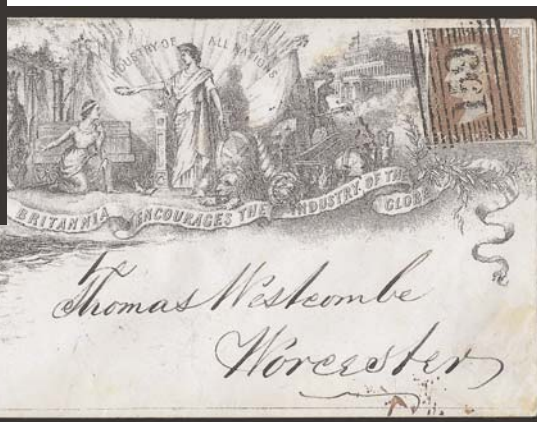 INDUSTRY OF ALL NATIONS
BRITANNIA ENCOURAGES THE INDUSTRY OF THE GLOBE
Thomas Westcombe
Worcester